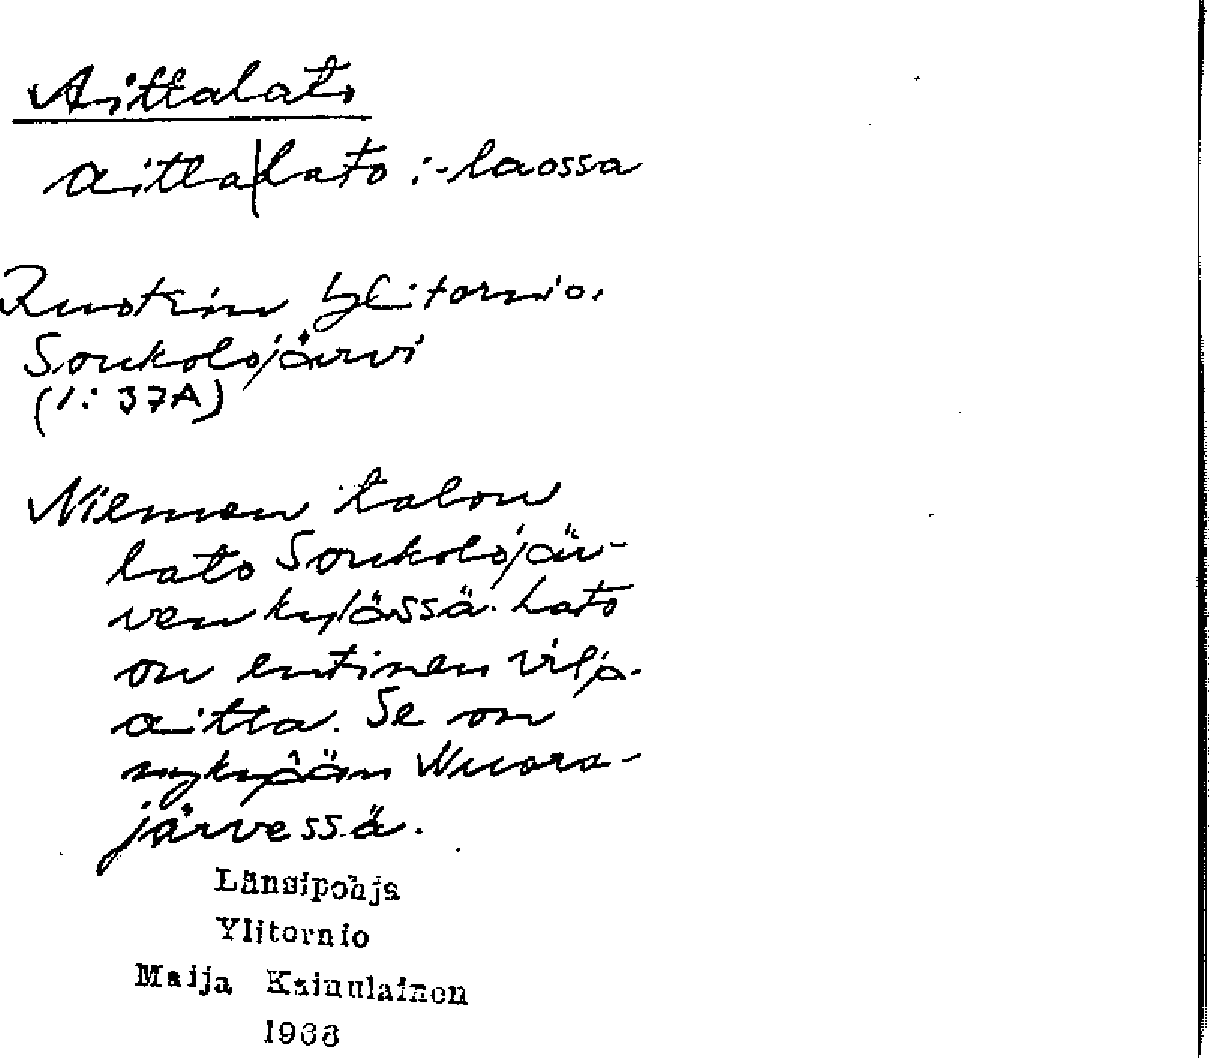 Aittalato
aitta|lato :-laossa
Ruotsin Ylitornio.
Soukolojärvi
(1: 37A)
Niemen talon
lato Soukolojär-
ven kylässä. Lato
on entinen vilja-
aitta. Se on
nykyään Nuora-
järvessä.
Länsipohja
Ylitornio
Maija Kainulainen
1966